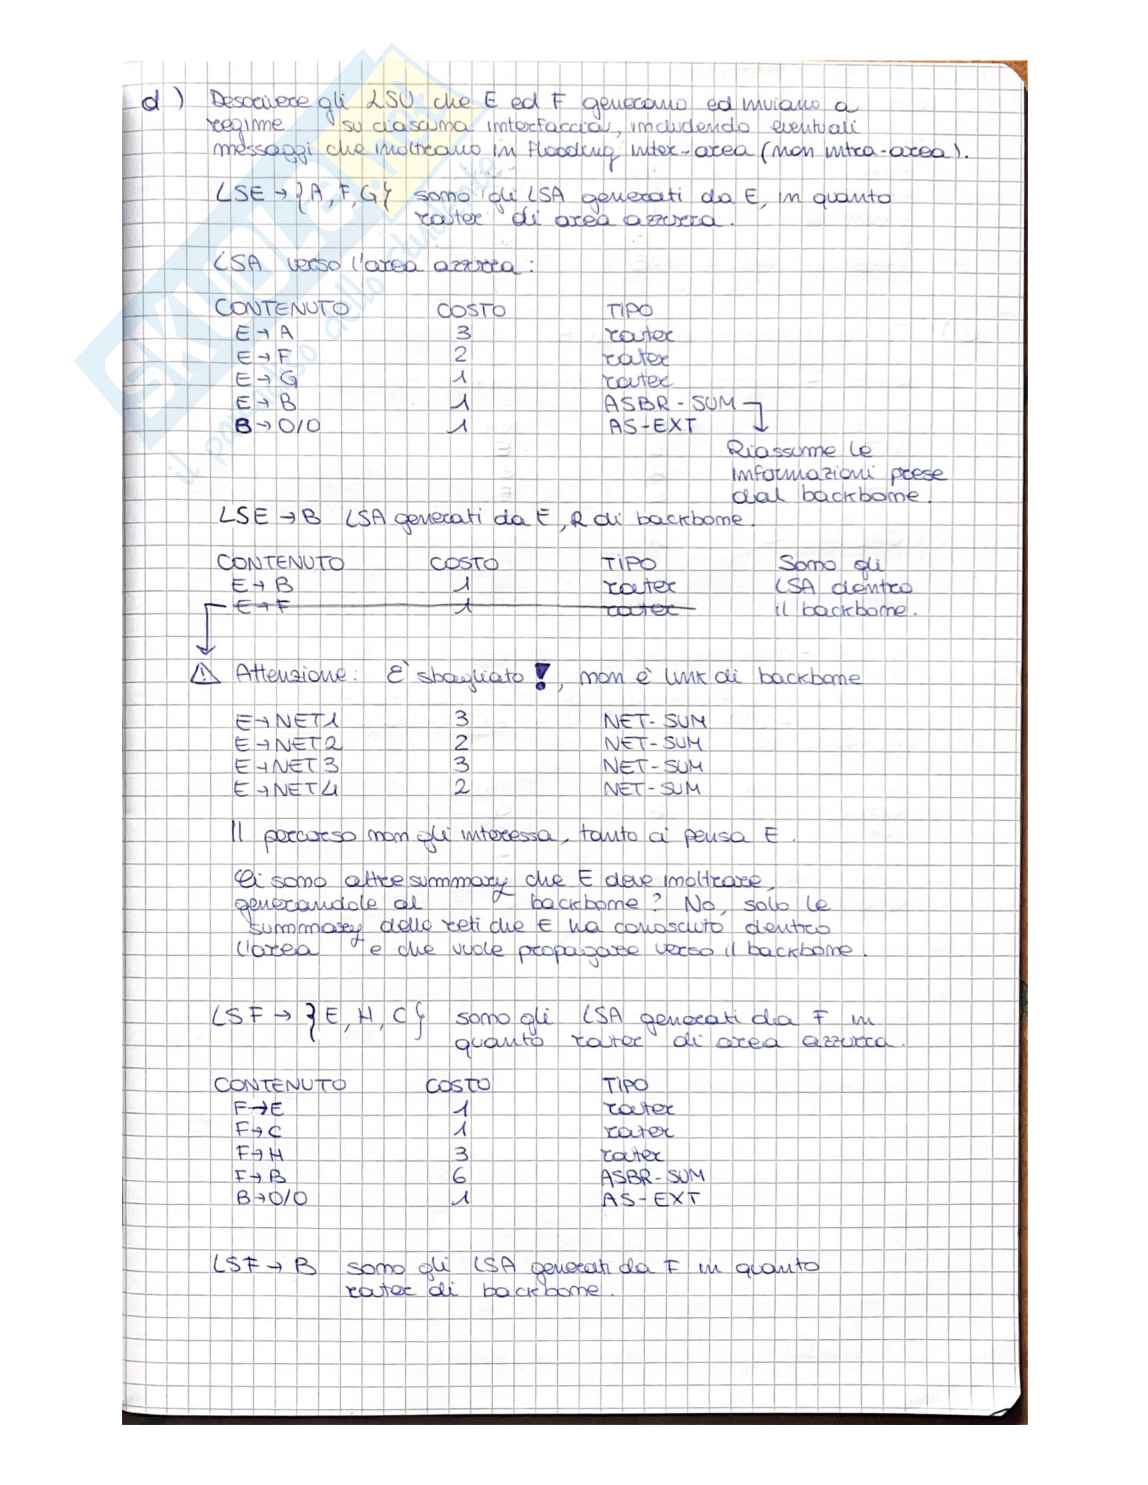 d) Descrivere gli LSU che E ed F generano ed inviano a
regime su ciascuna interfaccia, includendo eventuali
messaggi che inoltrano in flooding inter-area (non intra-area).
LSE → {A, F, G} sono gli LSA generati da E, in quanto
router di area azzurra.
LSA verso l'area azzurra:
CONTENUTO COSTO TIPO
E→A 3 router
E→F 2 router
E→G 1 router
E→B 1 ASBR-SUM
B→0/0 1 AS-EXT
Riassume le
informazioni prese
dal backbone.
LSE → B LSA generati da E, R di backbone.
CONTENUTO COSTO TIPO Sono gli
E→B 1 router LSA dentro
E→F 1 router il backbone.
⚠ Attenzione: E' sbagliato!, non è link di backbone
E→NET1 3 NET-SUM
E→NET2 2 NET-SUM
E→NET3 3 NET-SUM
E→NET4 2 NET-SUM
Il percorso non gli interessa, tanto ci pensa E.
Ci sono altre summary che E deve inoltrare,
generandole al backbone? No, solo le
summary delle reti che E ha conosciuto dentro
l'area e che vuole propagare verso il backbone.
LSF → {E, H, C} sono gli LSA generati da F in
quanto router di area azzurra.
CONTENUTO COSTO TIPO
F→E 1 router
F→C 1 router
F→H 3 router
F→B 6 ASBR-SUM
B→0/0 1 AS-EXT
LSF → B sono gli LSA generati da F in quanto
router di backbone.
SKUOLA.net
il paradiso dello studente